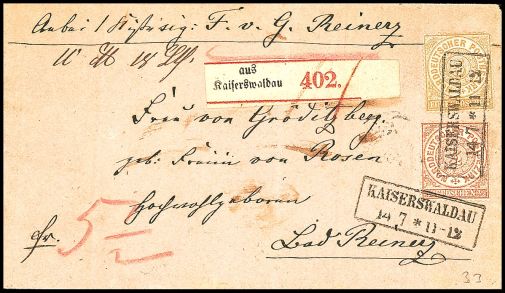 Anbei 1 Kistch: sig: F. v. G. Reinerz
aus
Kaiserswaldau 402.
NORDDEUTSCHER POSTBEZIRK
KAISERSWALDAU
14 7 * 11-12
Frau von Gröditzberg,
geb: Freiin von Rosen
Hochwohlgeboren
KAISERSWALDAU
14 7 * 11-12
fr.
Bad Reinerz
33